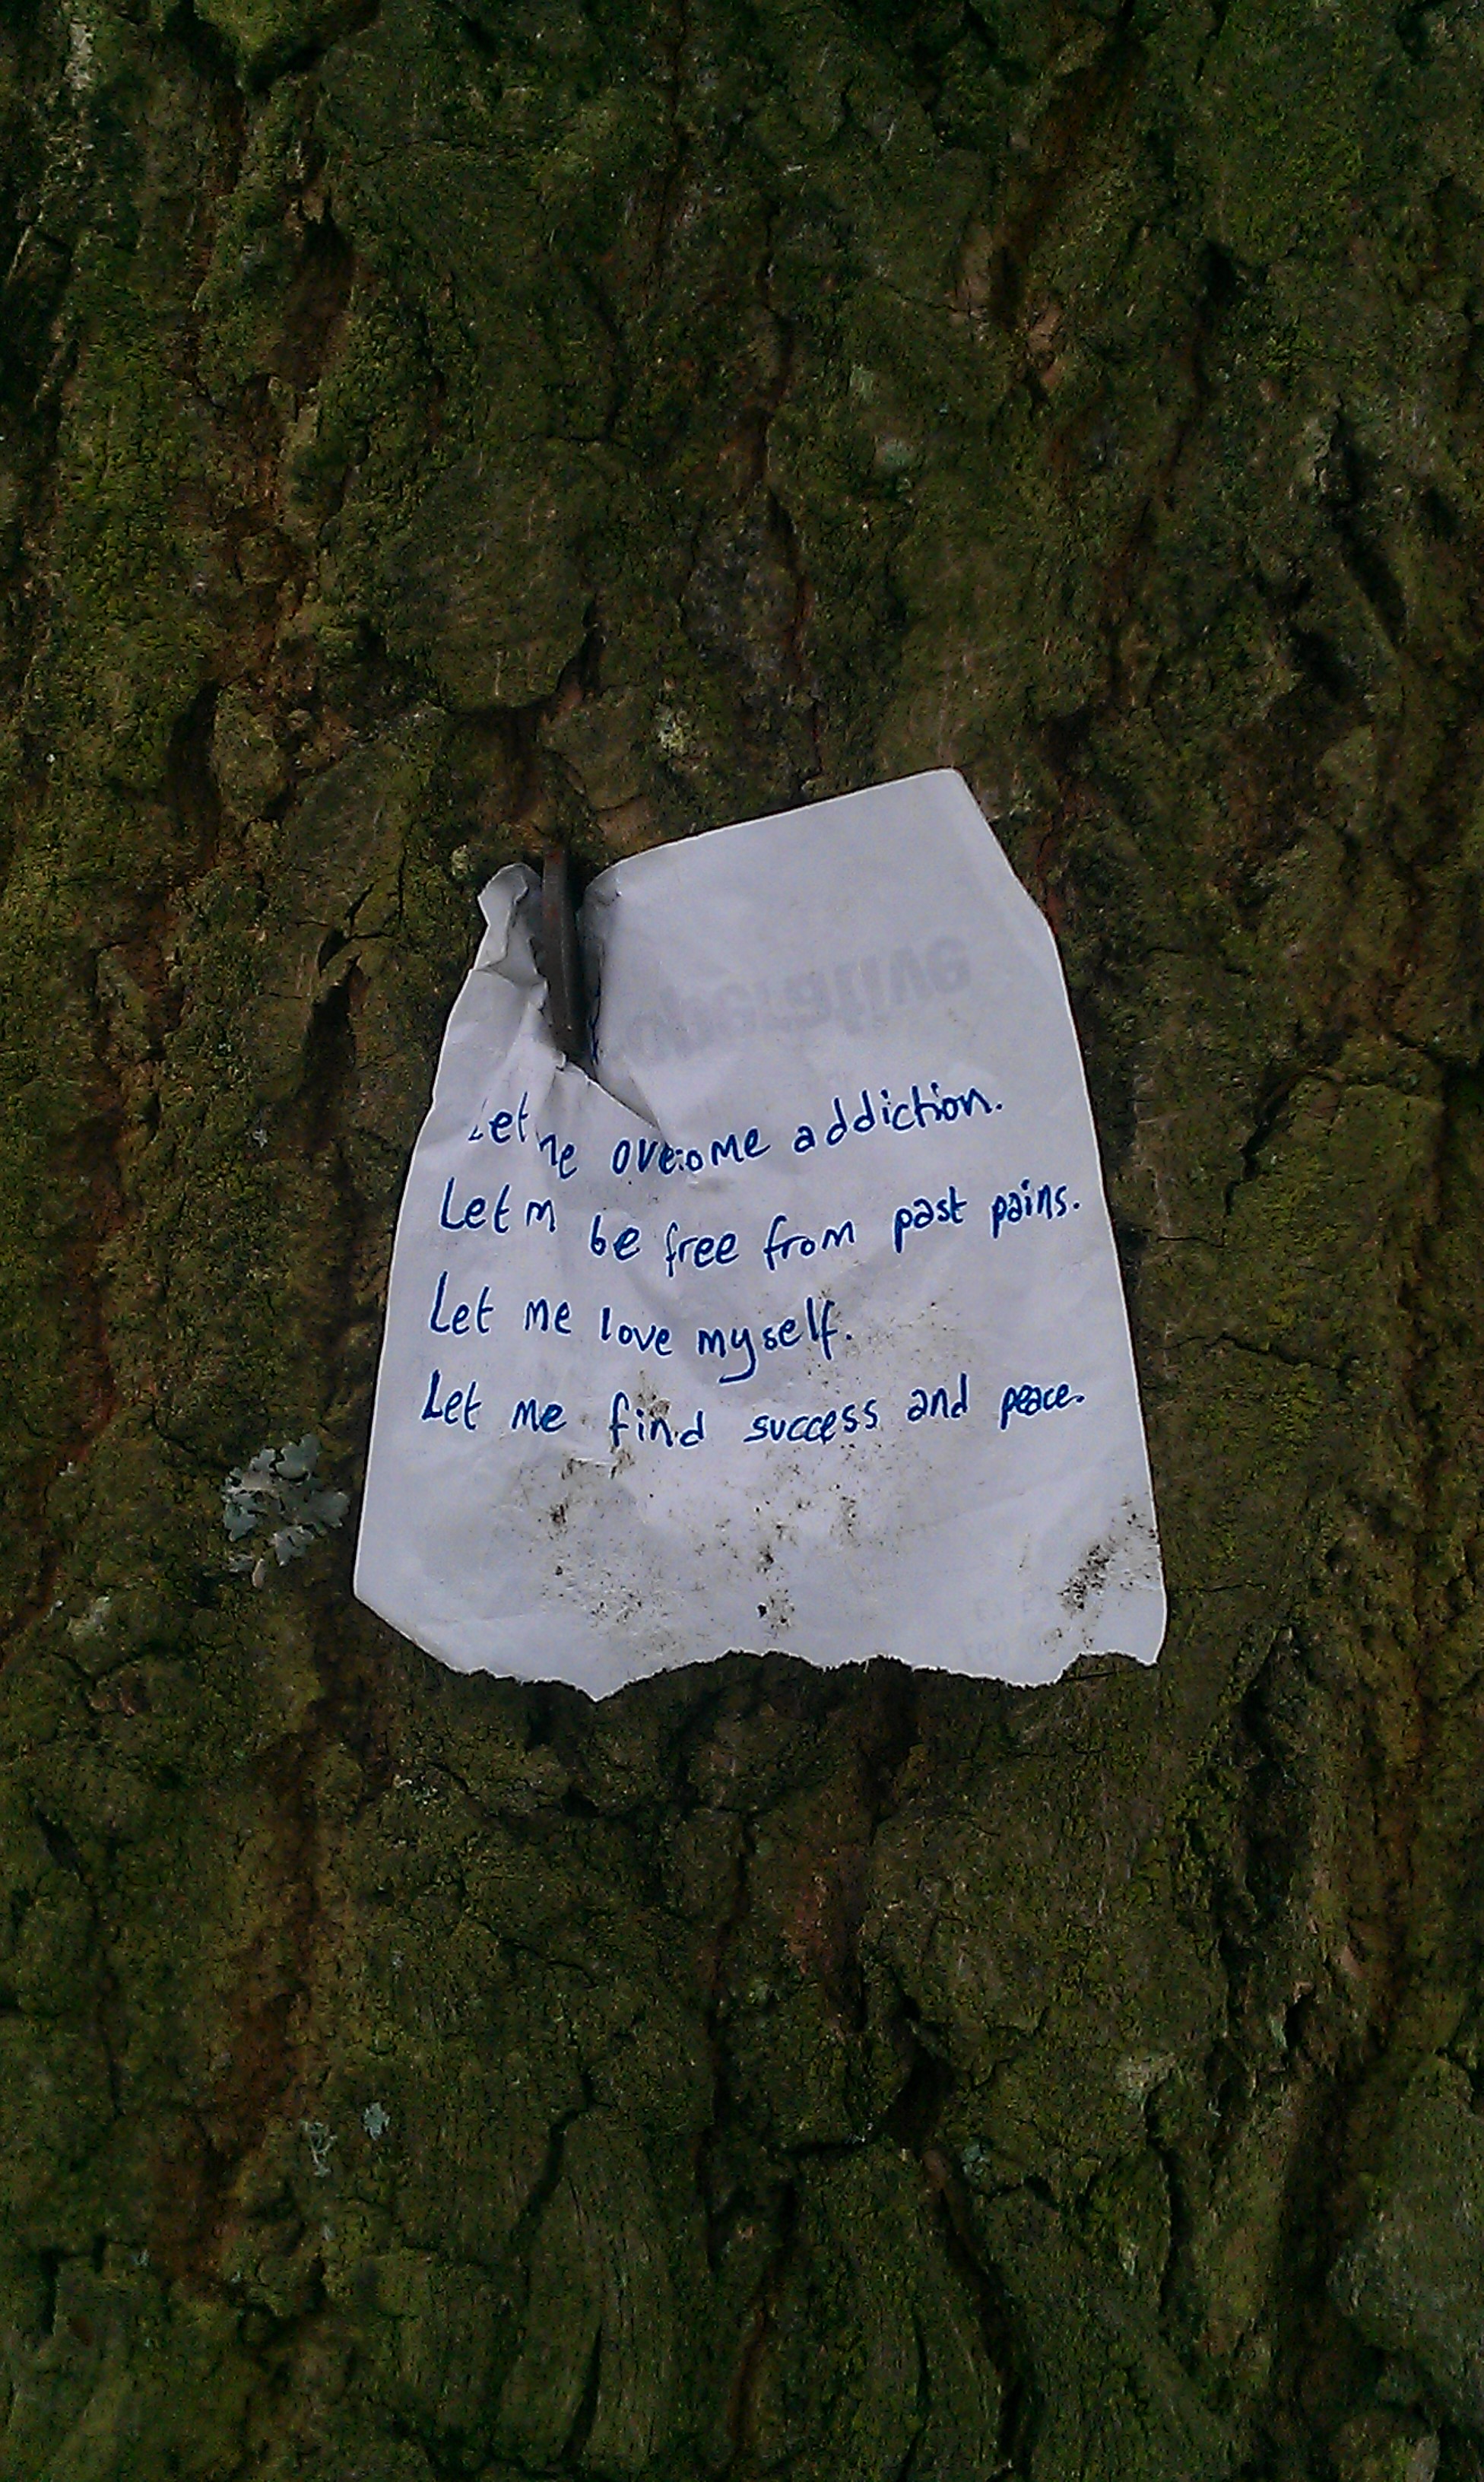 Let me overcome addiction.
Let m be free from past pains.
Let me love myself.
Let me find success and peace.